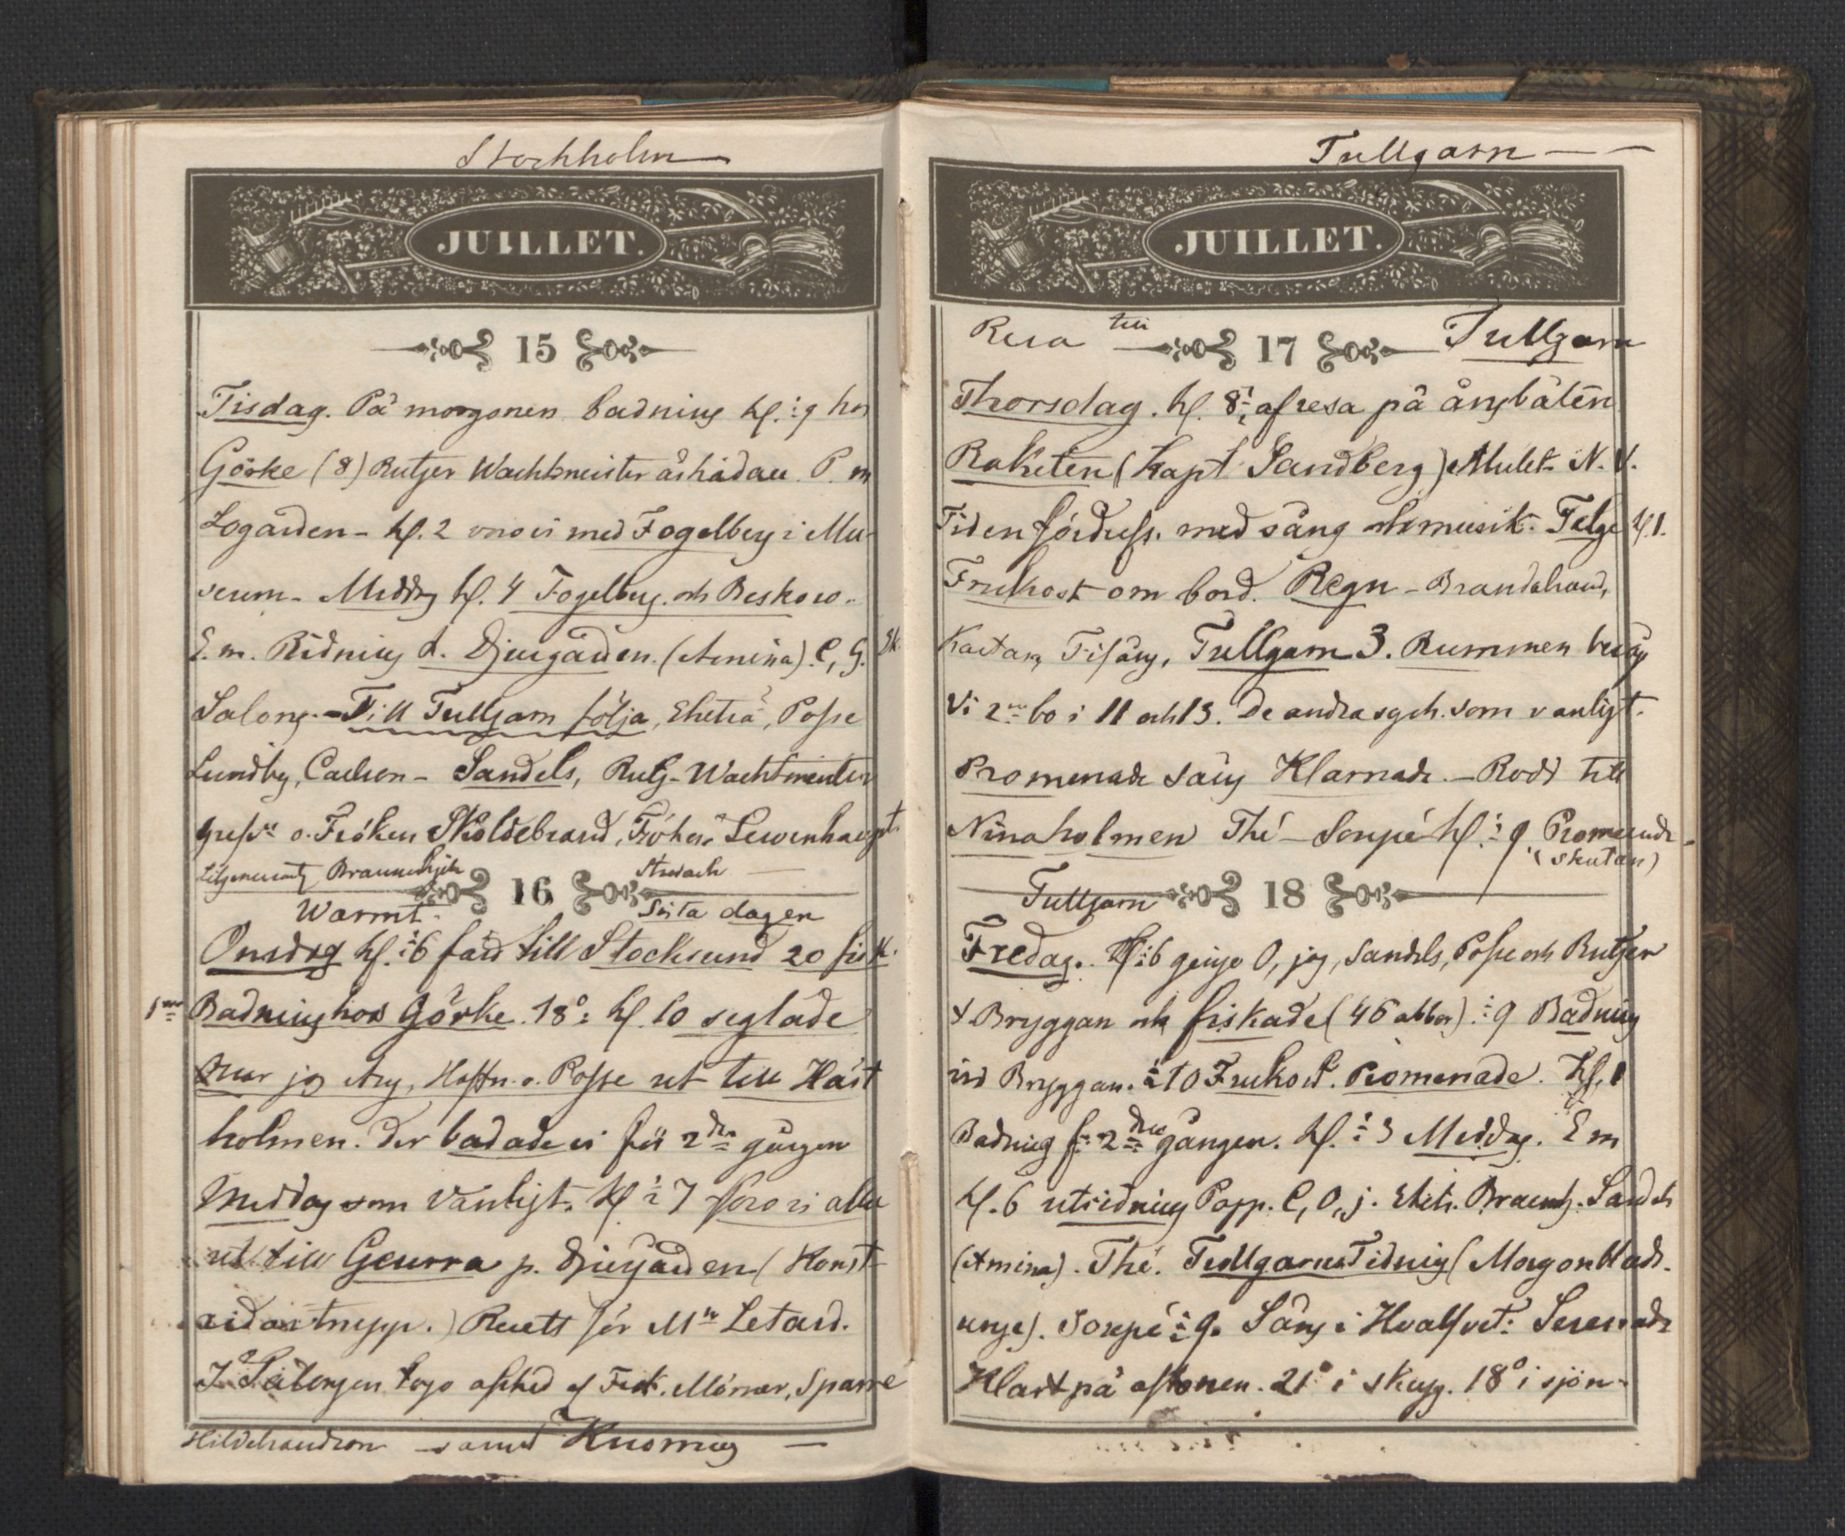 Stockholm
JUILLET.
15
Tisdag. På morgonen badning kl. ½9 hos
Görke (8) Rutger Wachtmeister åskådau. P. m
Logården - kl. 2 voro vi med Fogelberg i Mu-
seum - Middag kl. 4 Fogelberg och Beskow.
E. m. Ridning d. Djurgården. (Amina). C, G. Ek.
Salong. - Till Tullgarn följa, Posse
Lundbg, Carlson - Sandels, Rutg. Wachtmeister
o. Fröken Skjöldebrand, Lewenhaupt.
Braunerhjelm
16
Warmt.
Sista dagen
Onsdag kl. ½6 färd till Stocksund 20 fisk.
1ma Badning hos Görke. 18° kl. 10 seglade
jog Posse ut till Häst
holmen. Der badade vi för 2dra gången
Middag som vanligt. Kl ½7 foro vi alla
ut till Geurra p. Djurgården (Konst-
) Recett för Mn Letard.
togo afsked af Mörner, Sparre
Hildebrandson samt
Tullgarn
JUILLET.
Resa till Tullgarn
17
Thorsdag. kl. 8½ afresa på ångbåten
Raketen (Kapt Sandberg) Mulet. N. V.
Tiden fördrefs. med sång och musik. Telge kl 1.
Frukost om bord. Regn -
Tullgarn 3. Rummen
Vi 2ne bo i 11 och 13. De andra sgch. som vanligt.
Promenade sång Klarnade. - Rodd till
Ninaholmen Thé - Soupé kl. ½9. Promenade
(skutan)
Tullgarn
18
Fredag. Kl ½6 gingo O, jag, Sandels, Posse och Rutger
t Bryggan och fiskade (46 abbor). ½9 Badning
vid Bryggan. ½10 Frukost. Promenade. Kl. 1
Badning f. 2dra gången. Kl. ½3 Middag. E m
kl. 6 utridning Papp. C, O, j. Sandels
(Amina). Thé. Tullgarns Tidning (Morgonblads-
unge). Soupé ½9. Sång i Hvalfvet. Serenade
Klart på aftonen. 21° i skugg. 18° i sjön-